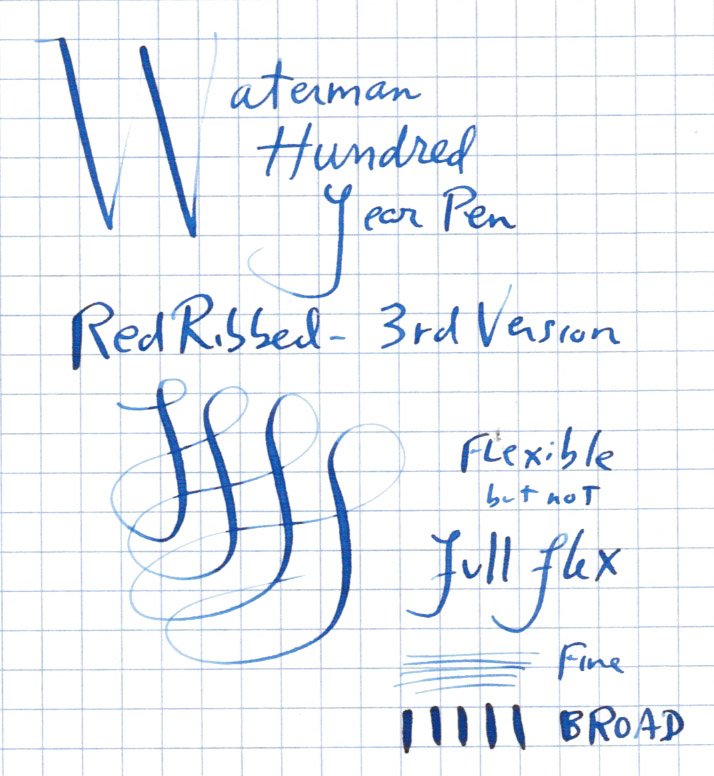 Waterman
Hundred
Year Pen
Red Ribbed - 3rd Version
Flexible
but not
full flex
Fine
BROAD